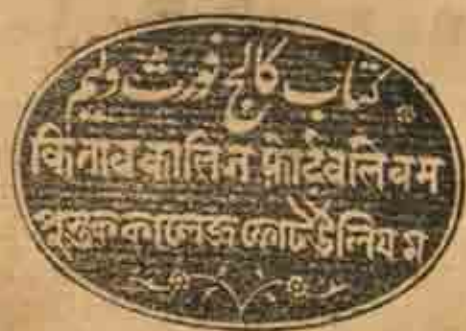 کتاب کالج فورٹ ولیم
किताब कालिज फ़ोर्टवलियम
পুস্তক কালেজ ফোর্টউলিয়ম